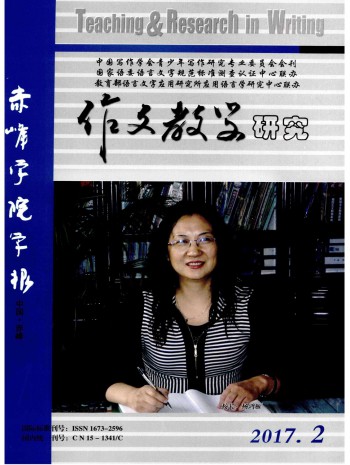 Teaching & Research in Writing
中国写作学会青少年写作研究专业委员会会刊
国家语委语言文字规范标准测查认证中心联办
教育部语言文字应用研究所应用语言学研究中心联办
作文教学研究
赤峰学院学报
ISSN 1673-2596
CN 15-1341/C
2017.2